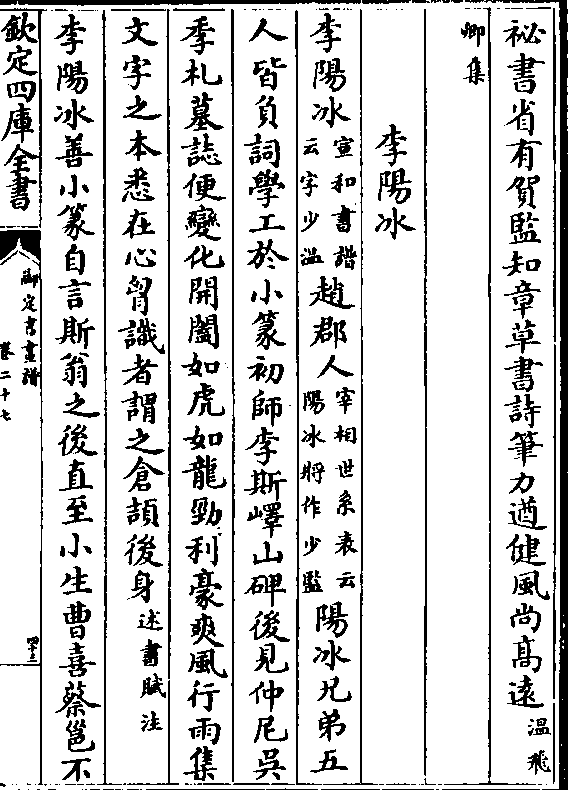 秘書省有賀監知章草書詩筆力遒健風尚髙遠溫飛
卿集
李陽冰
李陽冰宣和書譜云字少溫趙郡人宰相世系表云陽冰將作少監陽冰兄弟五
人皆負詞學工於小篆初師李斯嶧山碑後見仲尼吳
季札墓誌便變化開闔如虎如龍勁利豪爽風行雨集
文字之本悉在心胷識者謂之倉頡後身述書賦注
李陽冰善小篆自言斯翁之後直至小生曹喜蔡邕不
欽定四庫全書
御定書畫譜
卷二十七
四十三